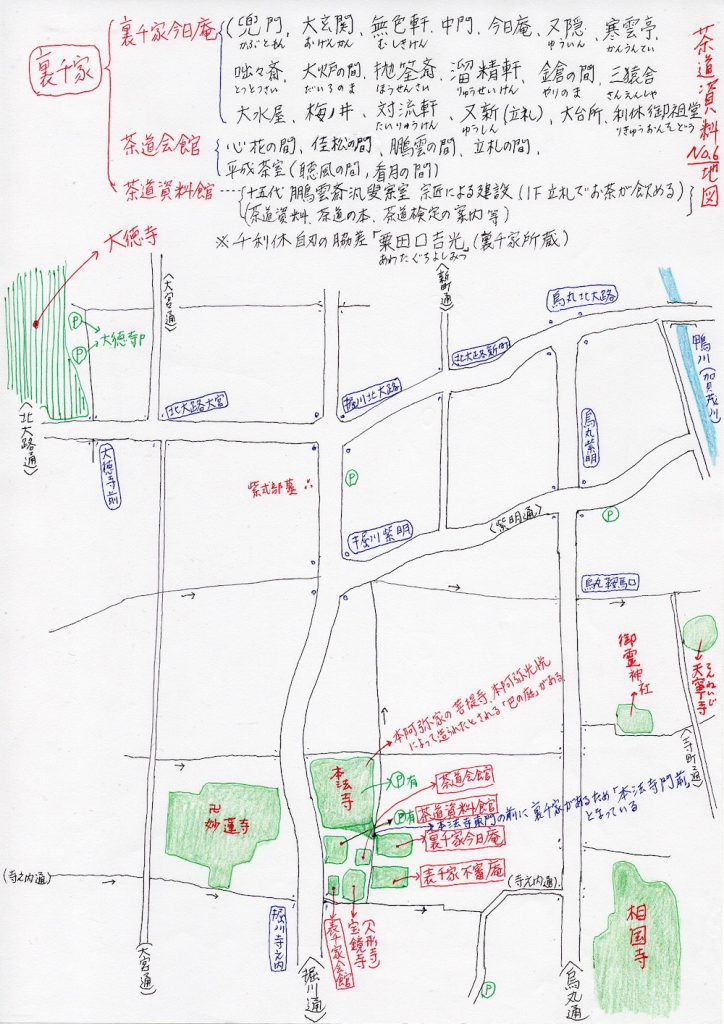 茶道資料 No.6 地図
裏千家
裏千家今日庵
(兜門、大玄関、無色軒、中門、今日庵、又隠、寒雲亭、
かぶともん おげんかん むしきけん ゆういん かんうんてい
咄々斎、大炉の間、抛筌斎、溜精軒、鎗の間、三猿舎
とつとつさい だいろのま ほうせんさい りゅうせいけん やりのま さんえんしゃ
大水屋、梅ノ井、対流軒、又新(立札)、大台所、利休御祖堂
たいりゅうけん ゆうしん りきゅうおんそどう
茶道会館
心花の間、佳松の間、鵬雲の間、立札の間、
平成茶室(聴風の間,看月の間)
茶道資料館
十五代 鵬雲斎汎叟宗室 宗匠による建設(1F 立札でお茶が飲める)
(茶道資料、茶道の本、茶道検定の案内 等)
※千利休 自刃の脇差「粟田口吉光」(裏千家所蔵)
あわたぐちよしみつ
大徳寺
〈大宮通〉
〈新町通〉
烏丸北大路
P
P
大徳寺P
北大路新町
鴨川(加賀茂川)
北大路大宮
堀川北大路
〈北大路通〉
大徳寺前
烏丸紫明
紫式部墓
P
堀川紫明
〈紫明通〉
P
烏丸鞍馬口
御霊神社
天寧寺
てんねいじ
〈寺町通〉
本阿弥家の菩提寺、本阿弥光悦
によって造られたとされる「巴の庭」がある
本法寺
P有
茶道会館
P有
茶道資料館
本法寺東門の前に裏千家があるため「本法寺門前」
となっている
裏千家今日庵
表千家不審庵
卍
妙蓮寺
(寺之内通)
(寺之内通)
堀川寺之内
表千家会館
宝鏡寺
(人形寺)
相国寺
〈大宮通〉
〈堀川通〉
P
〈烏丸通〉